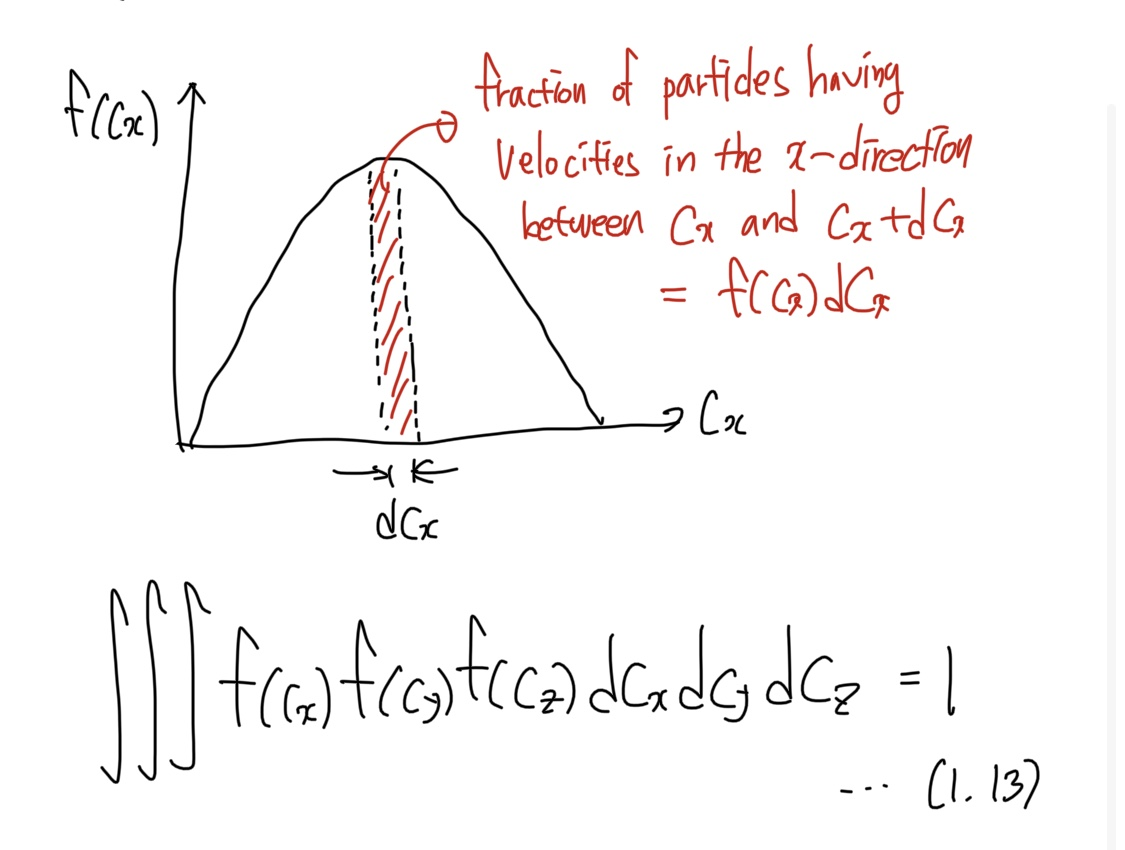 f(Cx)
fraction of particles having
velocities in the x-direction
between Cx and Cx+dCx
= f(Cx)dCx
Cx
dCx
∭ f(Cx) f(Cy) f(Cz) dCx dCy dCz = 1
... (1.13)